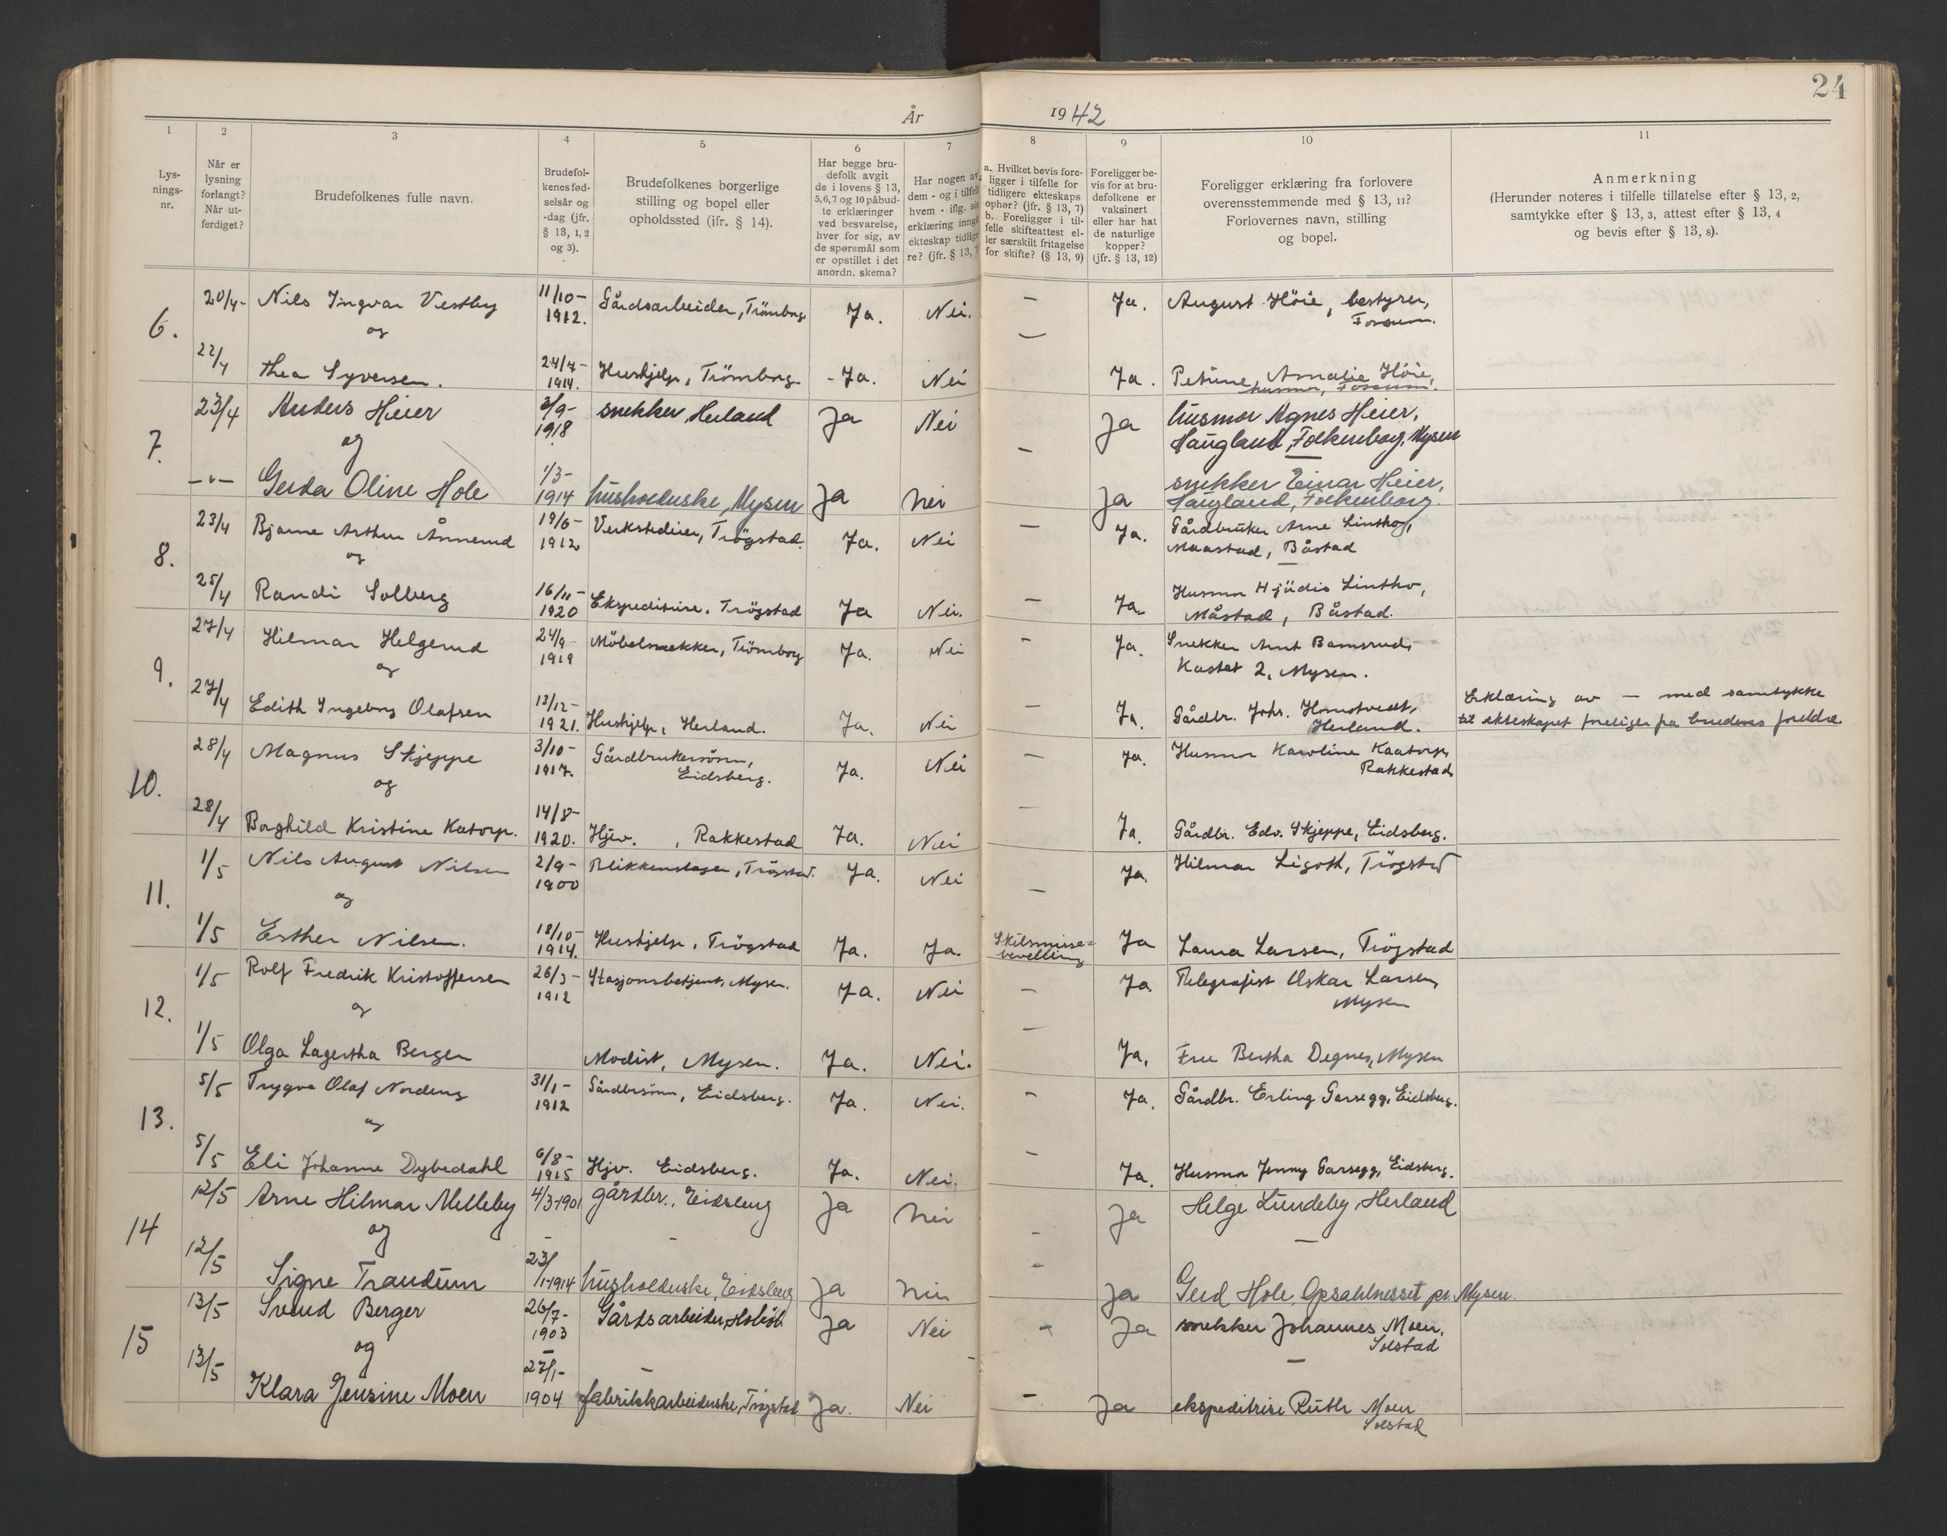 24
År
19 42
1
2
3
4
5
6
7
8
9
10
11
Lys-
nings-
nr.
Når er
lysning
forlangt?
Når ut-
ferdiget?
Brudefolkenes fulle navn.
Brudefol-
kenes fød-
selsår og
-dag (jfr.
§ 13, 1, 2
og 3).
Brudefolkenes borgerlige
stilling og bopel eller
opholdssted (jfr. § 14).
Har begge bru-
defolk avgit
de i lovens § 13,
5,6,7 og 10 påbud-
te erklæringer
ved besvarelse,
hver for sig, av
de spørsmål som
er opstillet i det
anordn. skema?
Har nogen av
dem - og i tilfelle
hvem - iflg. sin
erklæring inngå
ekteskap tidlige-
re? (jfr. § 13,
a. Hvilket bevis fore-
ligger i tilfelle for
tidligere ekteskaps
ophør? (jfr. § 13, 7)
b. Foreligger i til-
felle skifteattest el-
ler særskilt fritagelse
for skifte? (§ 13, 9)
Foreligger be-
vis for at bru-
defolkene er
vaksinert
eller har hat
de naturlige
kopper?
(jfr. § 13, 12)
Foreligger erklæring fra forlovere
overensstemmende med § 13, 11?
Forlovernes navn, stilling
og bopel.
Anmerkning
(Herunder noteres i tilfelle tillatelse efter § 13, 2,
samtykke efter § 13, 3, attest efter § 13, 4
og bevis efter § 13, 8).
6. 20/4- Nils Ingvar Vestby 11/10- 1912. Gårdsarbeider, Trömborg. Ja. Nei. — Ja. August Höie, bestyrer, Fossum.
og
22/4 Thea Syversen. 24/7- 1914. Hushjelp, Trömborg. - Ja. Nei — Ja. Petrine Amalie Höie, husmor, Fossum.
7. 23/4 Anders Heier 3/9- 1918 snekker Herland Ja Nei Ja husmor Agnes Heier, Haugland, Folkenborg, Mysen
og
-"- Gerda Oline Hole 1/3- 1914 husholderske, Mysen Ja nei — Ja snekker Einar Heier, Haugland, Folkenborg.
8. 23/4 Bjarne Arthur Ånnerud 19/6- 1912 Verkstedeier, Trögstad. Ja. Nei — Ja. Gårdbruker Arne Lintho, Maastad, Båstad
og
25/4 Randi Solberg 16/11- 1920 Ekspeditrise, Trögstad Ja Nei. — Ja. Husmor Hjördis Lintho, Måstad, Båstad.
9. 27/4 Hilmar Helgerud 24/9- 1919 Möbelsnekker, Trömborg Ja. Nei - Ja. Snekker Arnt Bamsrud, Kastet 2, Mysen.
og
27/4 Edith Ingeborg Olafsen 13/12- 1921. Hushjelp, Herland. Ja. Nei — Ja. Gårdbr. Johs. Homstvedt, Herland. Erklæring av — med samtykke
til ekteskapet foreligger fra brudens foreldre.
10. 28/4 Magnus Skjeppe 3/10- 1917. Gårdbrukersönn, Eidsberg. Ja. Nei — Ja. Husmor Karoline Kaatorp, Rakkestad
og
28/4 Borghild Kristine Katorp. 14/8- 1920. Hjv. , Rakkestad Ja. Nei — Ja. Gårdbr. Edv. Skjeppe, Eidsberg.
11. 1/5 Nils August Nilsen 2/9- 1900 Blikkenslager, Trögstad. Ja. Nei — Ja. Hilmar Ligoth, Trögstad
og
1/5 Esther Nilsen. 18/10- 1914. Hushjelp, Trögstad Ja. Ja. Skilsmisse= bevilling Ja Laura Larsen, Trögstad
12. 1/5 Rolf Fredrik Kristoffersen 26/3- 1912 Stasjonsbetjent, Mysen. Ja. Nei — Ja. Telegrafist Oskar Larsen, Mysen
og
1/5 Olga Lagertha Berger Modist, Mysen. Ja. Nei. — Ja. Fru Bertha Degnes, Mysen
13. 5/5 Trygve Olaf Nordeng 31/1- 1912 Gårdbrsönn, Eidsberg. Ja. Nei. — Ja. Gårdbr. Erling Garsegg, Eidsberg.
og
5/5 Eli Johanne Dybedahl 6/8- 1915 Hjv. Eidsberg. Ja. Nei. Ja. Husmor Jenny Garsegg, Eidsberg.
14 12/5 Arne Hilmar Melleby 4/3-1901 gårdbr., Eidsberg Ja nei — Ja Helge Lundeby, Herland
og
12/5 Signe Trandum 23/1-1914 husholderske, Eidsberg Ja nei — Ja Gerd Hole, Opsahlnesset pr. Mysen.
15 13/5 Svend Berger 26/7- 1903 Gårdsarbeider, Hobøl Ja Nei — Ja snekker Johannes Moen, Solstad
og
13/5 Klara Jensine Moen 27/1- 1904 fabrikkarbeiderske, Trögstad Ja. Nei — Ja ekspeditrise Ruth Moen Solstad